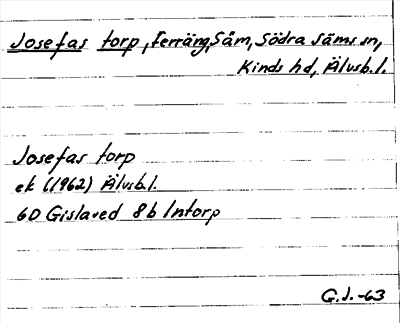 Josefas torp, Terräng, Såm, Södra Säms sn,
Kinds hd, Älvsb.l.
Josefas torp
ek (1962) Älvsb.l.
6D Gislaved 8b Intorp
G.J.-63